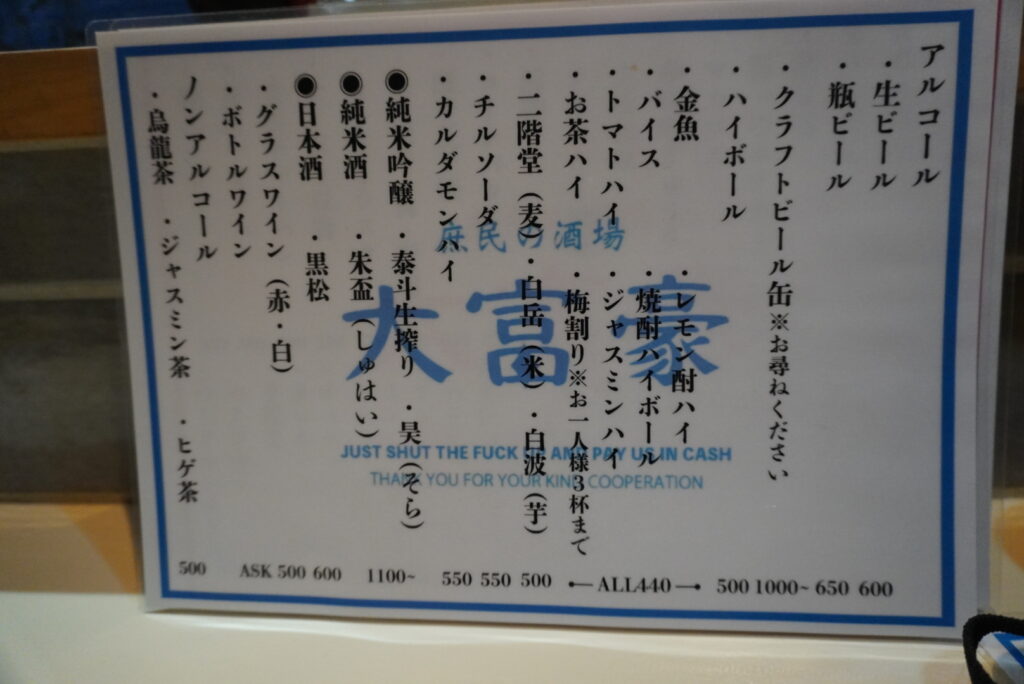 アルコール
・生ビール
・瓶ビール
・クラフトビール缶※お尋ねください
・ハイボール
・金魚 ・レモン酎ハイ
・バイス ・焼酎ハイボール
・トマトハイ ・ジャスミンハイ
・お茶ハイ ・梅割り※お一人様3杯まで
・二階堂（麦）・白岳（米）・白波（芋）
・チルソーダ
・カルダモンハイ
◉純米吟醸 ・泰斗生搾り ・昊（そら）
◉純米酒 ・朱盃（しゅはい）
◉日本酒 ・黒松
・グラスワイン（赤・白）
・ボトルワイン
ノンアルコール
・烏龍茶 ・ジャスミン茶 ・ヒゲ茶
庶民の酒場
大富豪
JUST SHUT THE FUCK UP AND PAY US IN CASH
THANK YOU FOR YOUR KIND COOPERATION
500 ASK 500 600 1100~ 550 550 500 ALL440 500 1000~ 650 600